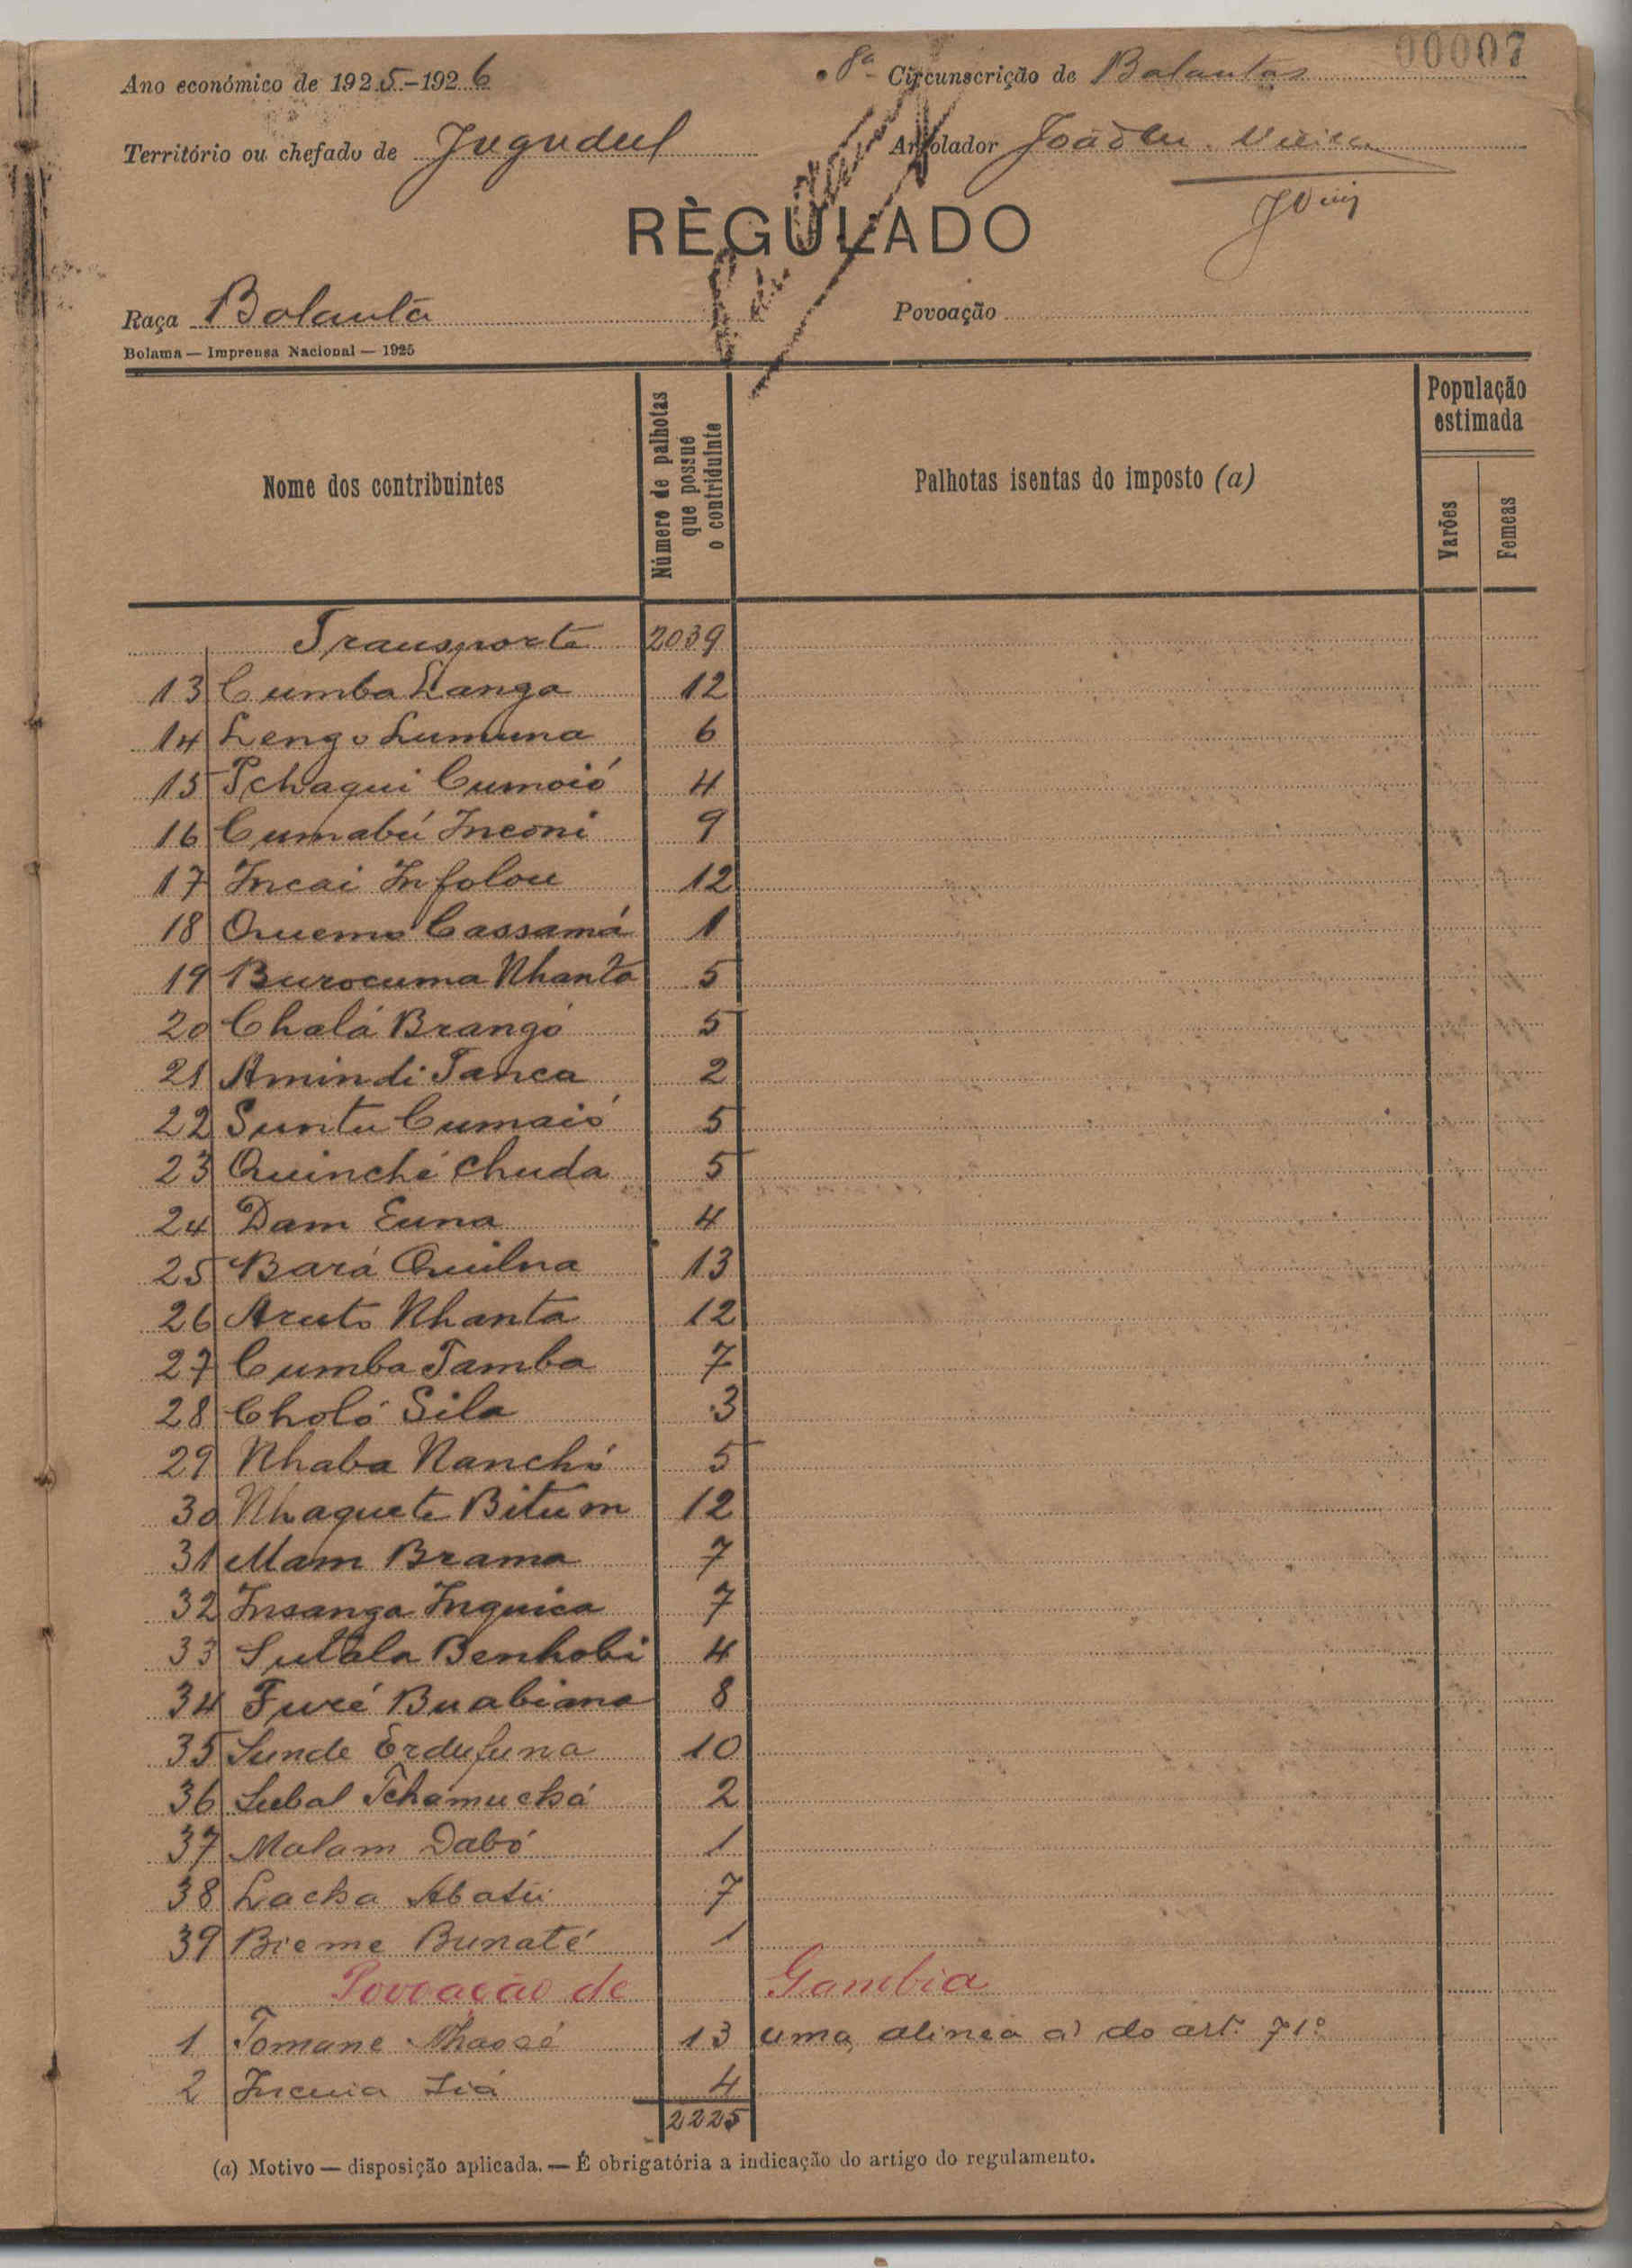 00007
Ano económico de 1925-1926 8ª Circunscrição de Balantas
Território ou chefado de Jugudul Arrolador João M. Vieira
RÈGULADO
Raça Balanta Povoação
Bolama — Imprensa Nacional — 1925
Nome dos contribuintes
Número de palhotas que possue o contriduinte
Palhotas isentas do imposto (a)
População estimada
Varões
Femeas
Transporte 2039
13 Cumba Langa 12
14 Lengo Lumuna 6
15 Tchaqui Cumoió 4
16 Cumabú Inconi 9
17 Incai Infolou 12
18 Quemo Cassamá 1
19 Burocuma Nhanta 5
20 Chalá Brangó 5
21 Amindi Tanca 2
22 Suntu Cumaió 5
23 Quinché Chuda 5
24 Dam Euna 4
25 Bará Quilna 13
26 Aruto Nhanta 12
27 Cumba Tamba 7
28 Choló Sila 3
29 Nhaba Nanchó 5
30 Nhaquete Bitum 12
31 Mam Brama 7
32 Insanga Inquica 7
33 Sutala Benhobi 4
34 Furé Buabiana 8
35 Sunde Erdufuna 10
36 Subal Tchamuchá 2
37 Malam Dabó 1
38 Lacha Abatú 7
39 Bieme Bunaté 1
Povoação de Gambia
1 Tomane 13 uma, alinea a) do art. 71º
2 4
2225
(a) Motivo — disposição aplicada. — É obrigatória a indicação do artigo do regulamento.